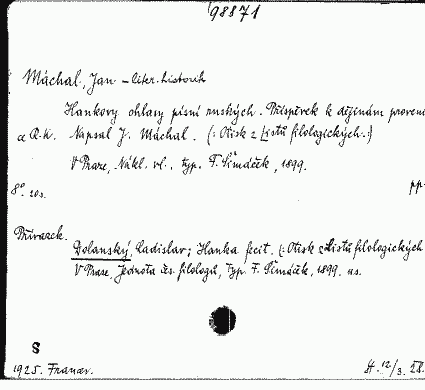 98871
Máchal, Jan - liter. historik
Hankovy ohlasy písní ruských. Příspěvek k dějinám proveni
a R.K. Napsal J. Máchal. (: Otisk z Listů filologických :)
V Praze, Nákl. vl., typ. F. Šimáček, 1899.
8°. 20s. pp.
Přívazek.
Dolanský, Ladislav; Hanka fecit. (: Otisk z Listů filologických
V Praze, Jednota čes. filologů, typ. F. Šimáček, 1899. us.
S
1925. Franar. H. 12/3. 28.